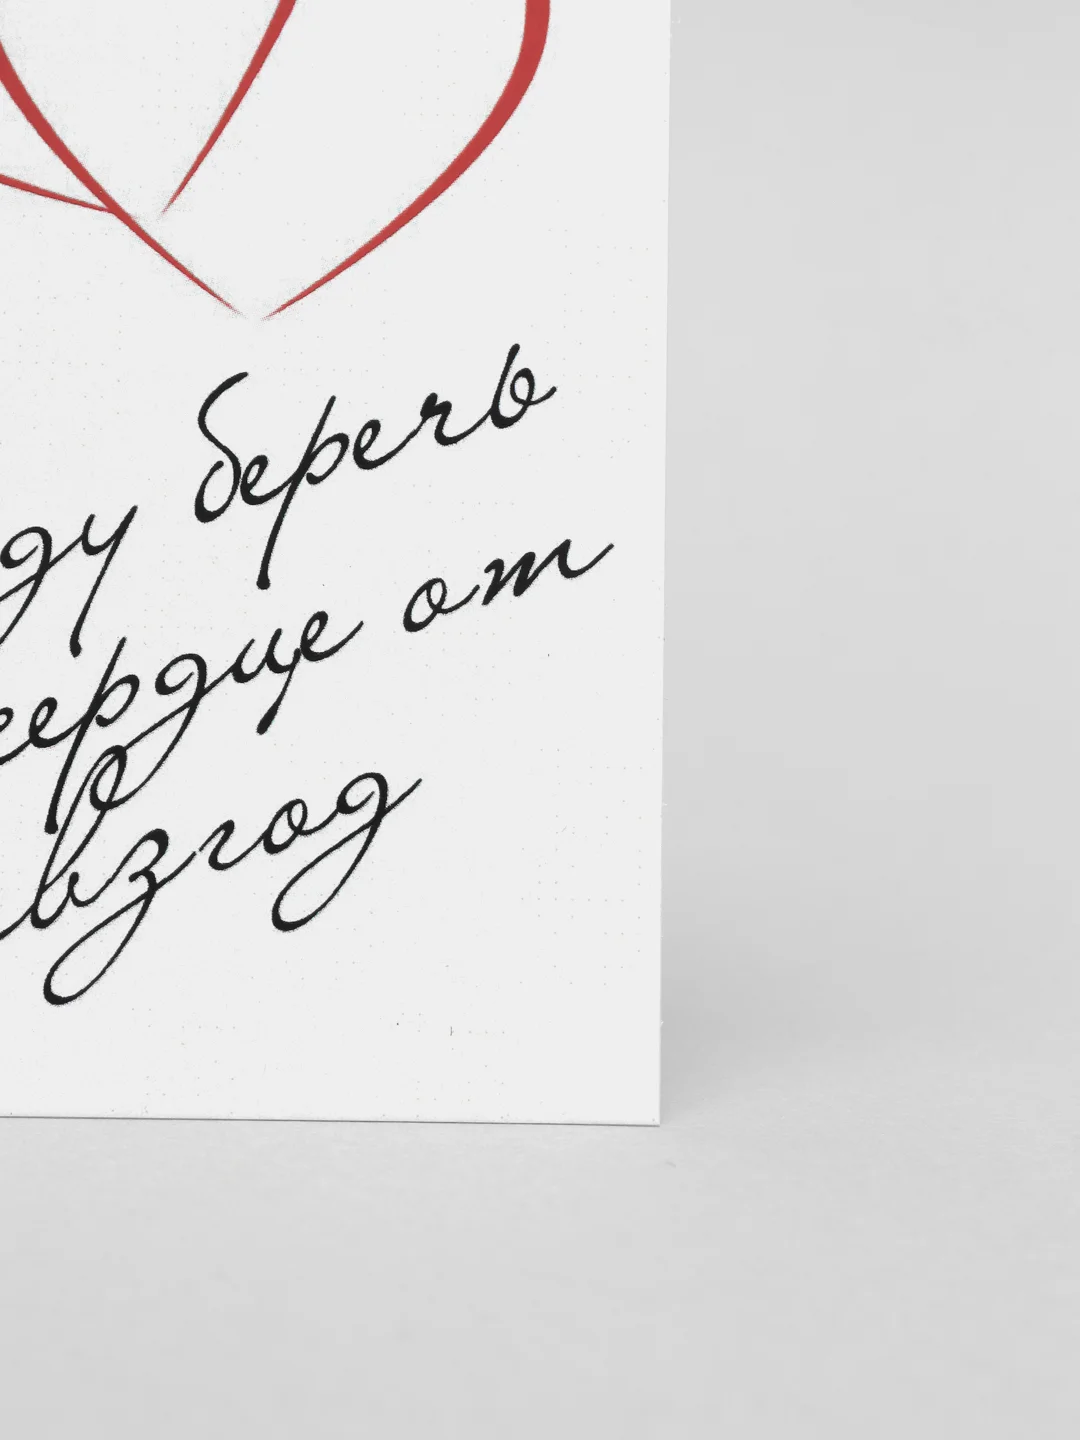 ду беречь
сердце от
взгод